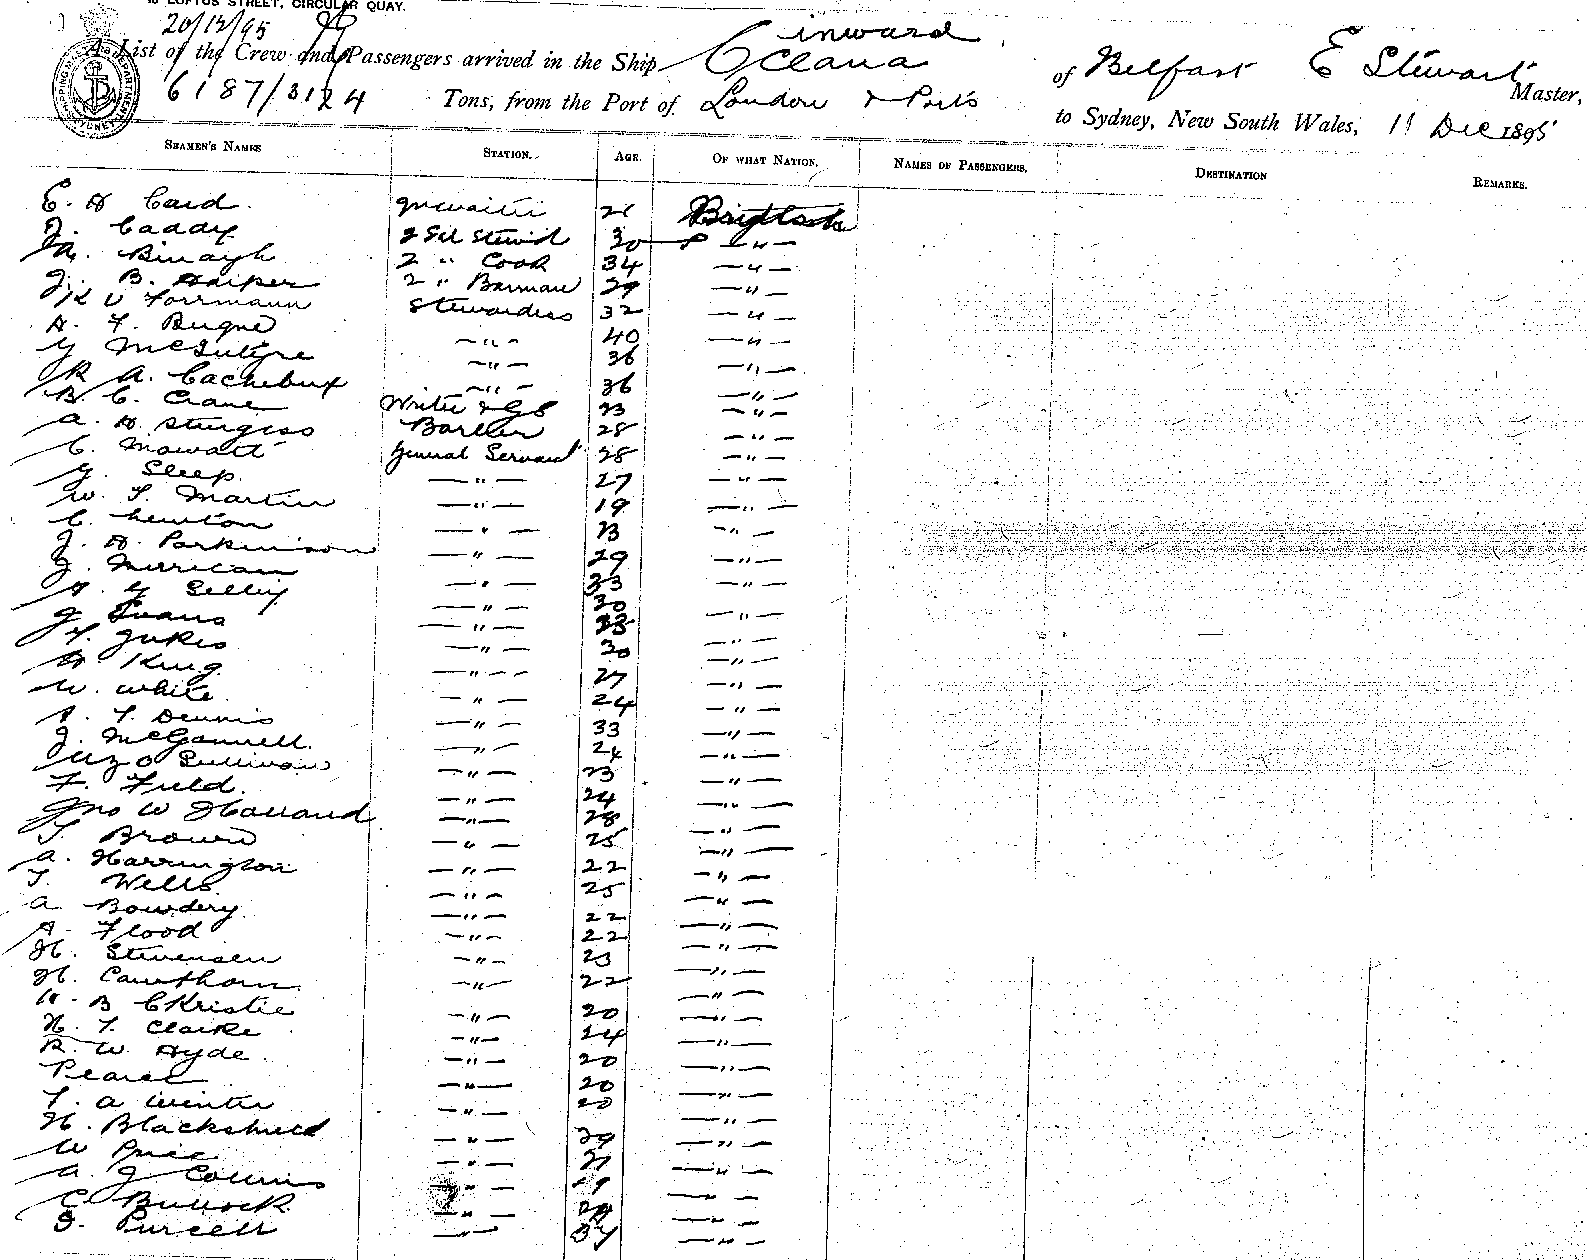 LOFTUS STREET, CIRCULAR QUAY.
20/12/95
inward
A List of the Crew and Passengers arrived in the Ship Oceana of Belfast E Stewart Master,
6187/3124 Tons, from the Port of London & Ports to Sydney, New South Wales, 11 Dec 1895
SEAMEN'S NAMES STATION. AGE. OF WHAT NATION. NAMES OF PASSENGERS. DESTINATION REMARKS.
E. H Card 26 British
J. Caddy 2 Sal Steward 30 — " —
Binayh 2 " Cook 34 — " —
J. B. Harper 2 " Barman 29 — " —
K V Forrmann Stewardess 32 — " —
H. F. Bugne — " — 40 — " —
G McIntyre — " — 36 — " —
R A. Cachebux — " — 36 — " —
B. C. Crane Writer & GS 23 — " —
A. H. Sturgess Barber 28 — " —
C. Mowatt General Servant 28 — " —
G. Sleep — " — 27 — " —
W. T. Martin — " — 19 — " —
C. Newton — " — 23 — " —
J. H. Parkinson — " — 29 — " —
J. Merrican — " — 33 — " —
A. G Selby — " — 30
J Evans — " — 33 — " —
F. Jukes — " — 30 — " —
H King — " — 27 — " —
W. White — " — 24 — " —
A. T. Dennis — " — 33 — " —
J. McGannell — " — 24 — " —
O Sullivan — " — 23 — " —
F. Field — " — 24 — " —
Jno W Harrand — " — 28 — " —
T. Brown — " — 25 — " —
A. Harrington — " — 22 — " —
T. Wells — " — 25 — " —
A Bowdery — " — 22 — " —
A. Flood — " — 22 — " —
H. Stevensen — " — 23 — " —
H. Cawthorn — " — 22 — " —
H. B Christie — " — 20 — " —
H. T. Clarke — " — 24 — " —
R. W. Hyde — " — 20 — " —
Pearce — " — 20 — " —
T. A Winter — " — 20 — " —
H. Blackshield — " — 29 — " —
W Price — " — 21 — " —
A. J Collins — " — — " —
C. Bullock — " — 29 — " —
J. Purcell — " — 37 — " —